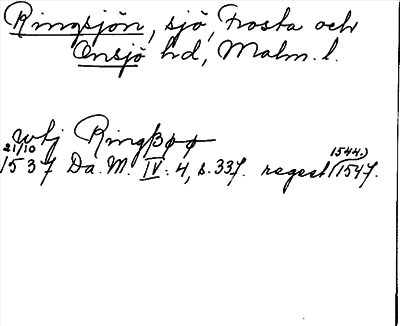 Ringsjön, sjö, Frosta och
Onsjö hd, Malm. l.
wtj Ringßøø
21/10
1537 Da. M. IV. 4, s. 337. regest (1547.
1544.)